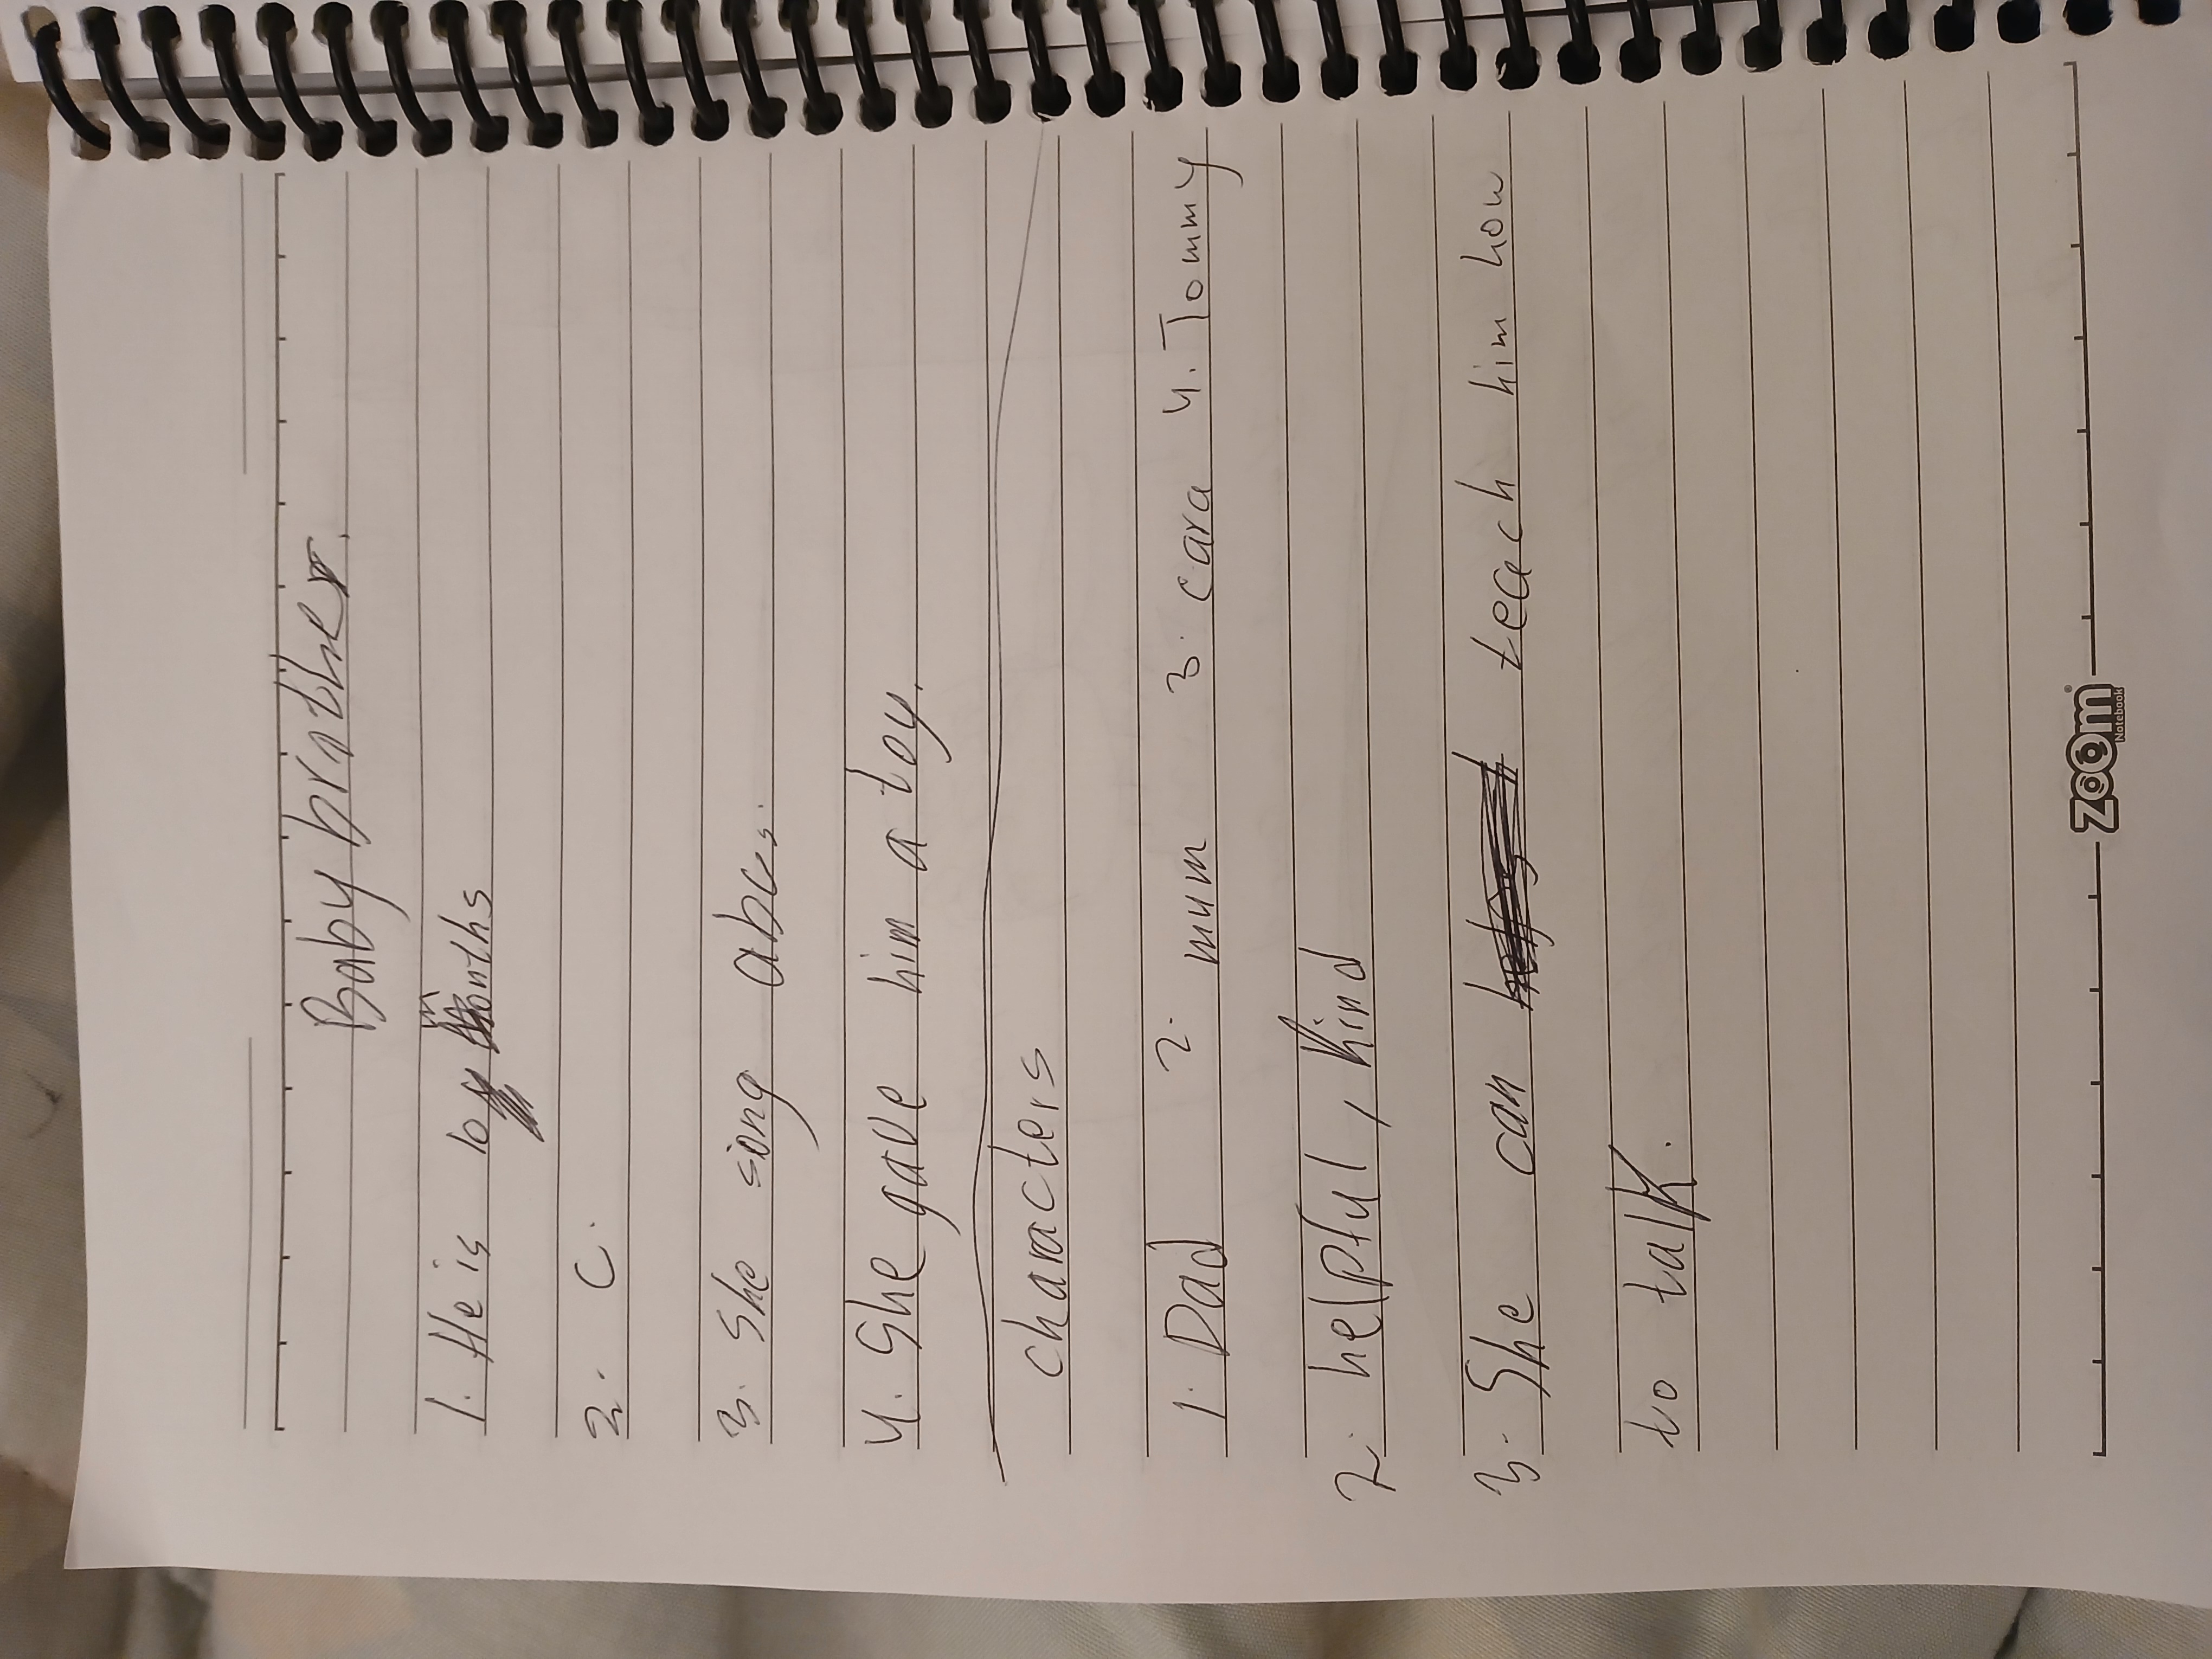 Baby brother.
1. He is 10 months
2. C.
3. She sing abcs.
4. She gave him a toy.
characters
1. Dad 2. mum 3. cara 4. Tommy
2. helpful, kind
3. She can teach him how
to talk.
zoom®
Notebook